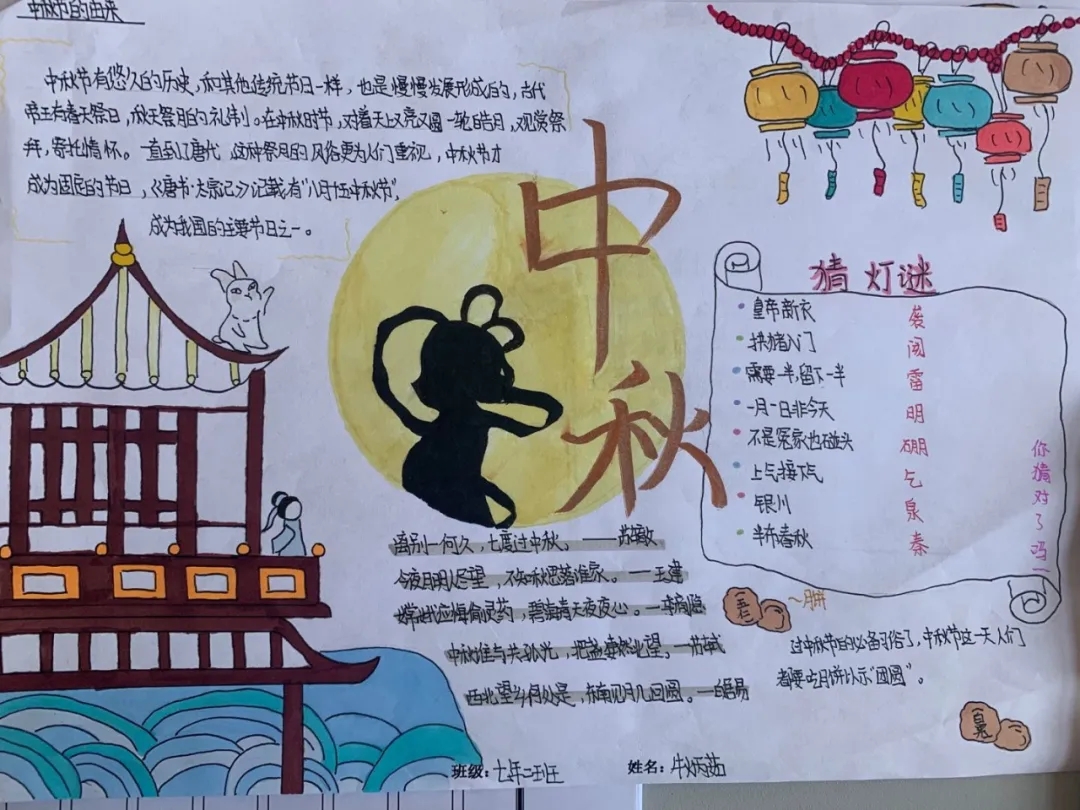 中秋节的由来
中秋节有悠久的历史,和其他传统节日一样,也是慢慢发展形成的,古代
帝王有春天祭日,秋天祭月的礼制。在中秋时节,对着天上又亮又圆一轮皓月,观赏祭
拜,寄托情怀。一直到了唐代,这种祭月的风俗更为人们重视,中秋节才
成为固定的节日,《唐书·太宗记》记载有“八月十五中秋节”,
成为我国的主要节日之一。
中秋
猜灯谜
皇帝新衣 袭
拱猪入门 阂
需要一半,留下一半 雷
一月一日非今天 明
不是冤家也碰头 硼
上气接下气 乞
银川 泉
半布春秋 秦
你猜对了吗
离别一何久,七度过中秋。——苏辙
今夜月明人尽望,不知秋思落谁家。——王建
嫦娥应悔偷灵药,碧海青天夜夜心。——李商隐
中秋谁与共孤光,把盏凄然北望。——苏轼
西北望乡何处是,东南见月几回圆。——白居易
五仁
~月饼
过中秋节的必备习俗了,中秋节这一天人们
都要吃月饼以示“团圆”。
班级:七年二班
姓名: